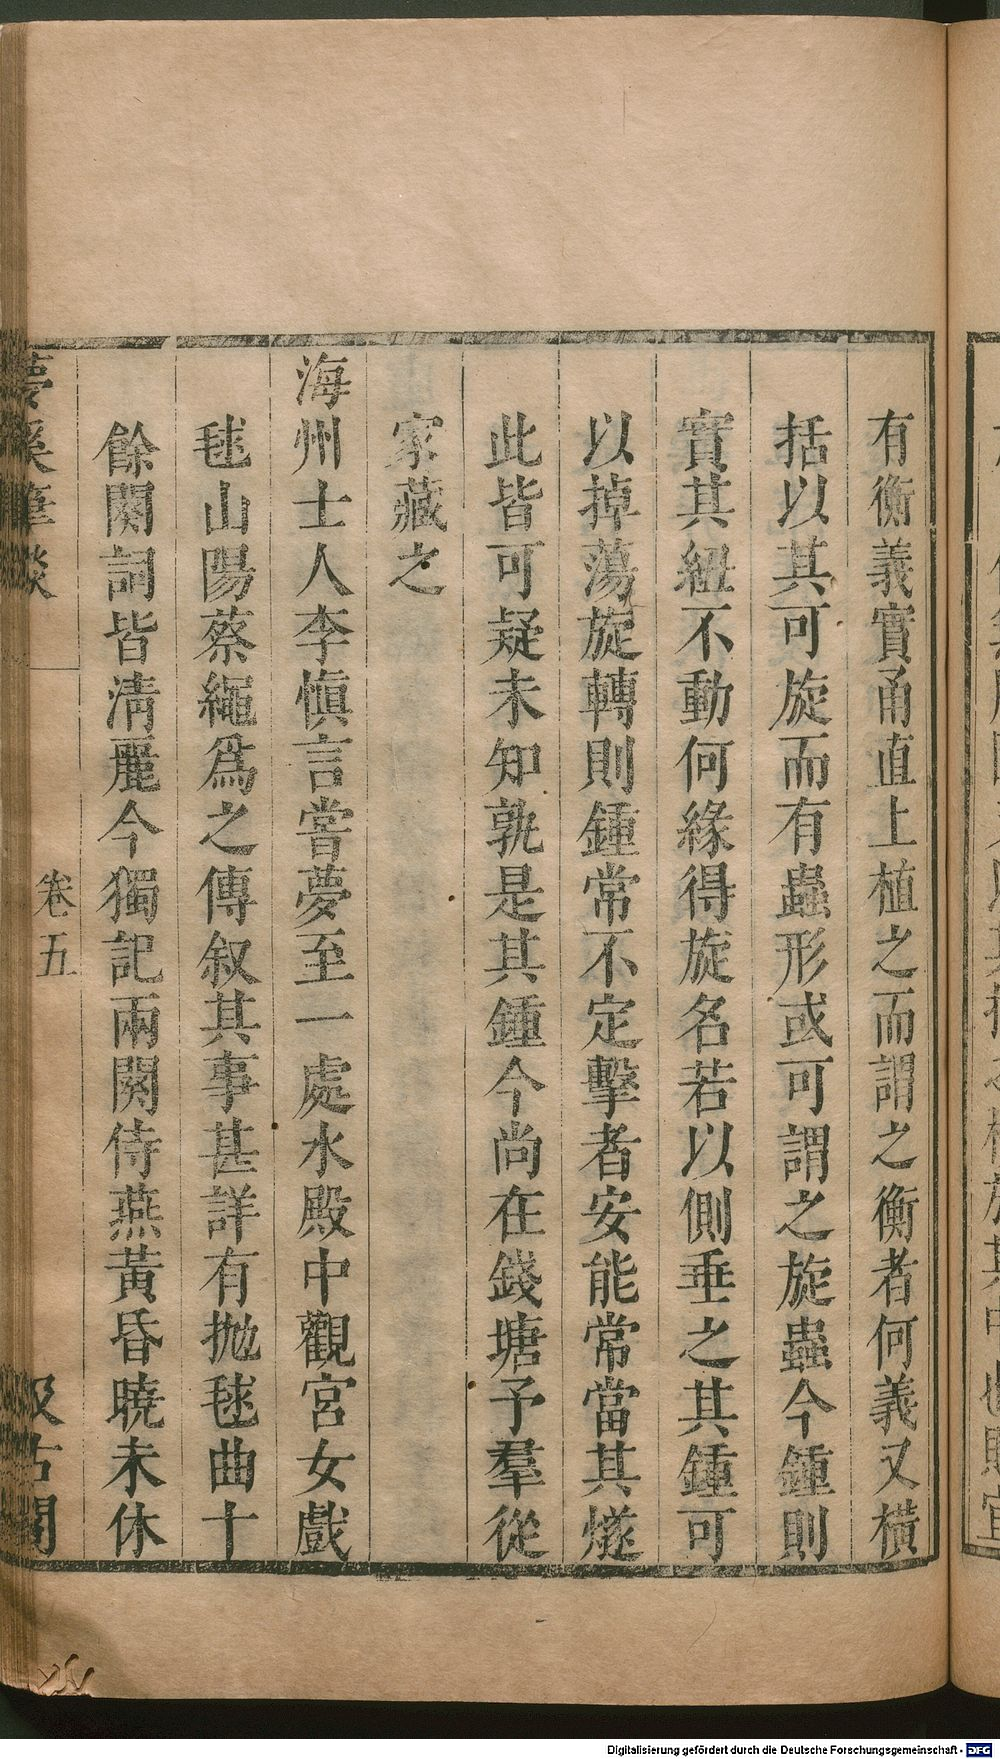 有衡義實甬直上植之而謂之衡者何義又橫
括以其可旋而有蟲形或可謂之旋蟲今鍾則
實其紐不動何緣得旋名若以側垂之其鍾可
以掉蕩旋轉則鍾常不定擊者安能常當其燧
此皆可疑未知孰是其鍾今尚在錢塘予羣從
家藏之
海州士人李愼言嘗夢至一處水殿中觀宮女戲
毬山陽蔡繩爲之傳叙其事甚詳有拋毬曲十
餘闋詞皆淸麗今獨記兩闋侍燕黃昏曉未休
夢溪筆談 卷五 汲古閣
Digitalisierung gefördert durch die Deutsche Forschungsgemeinschaft - DFG